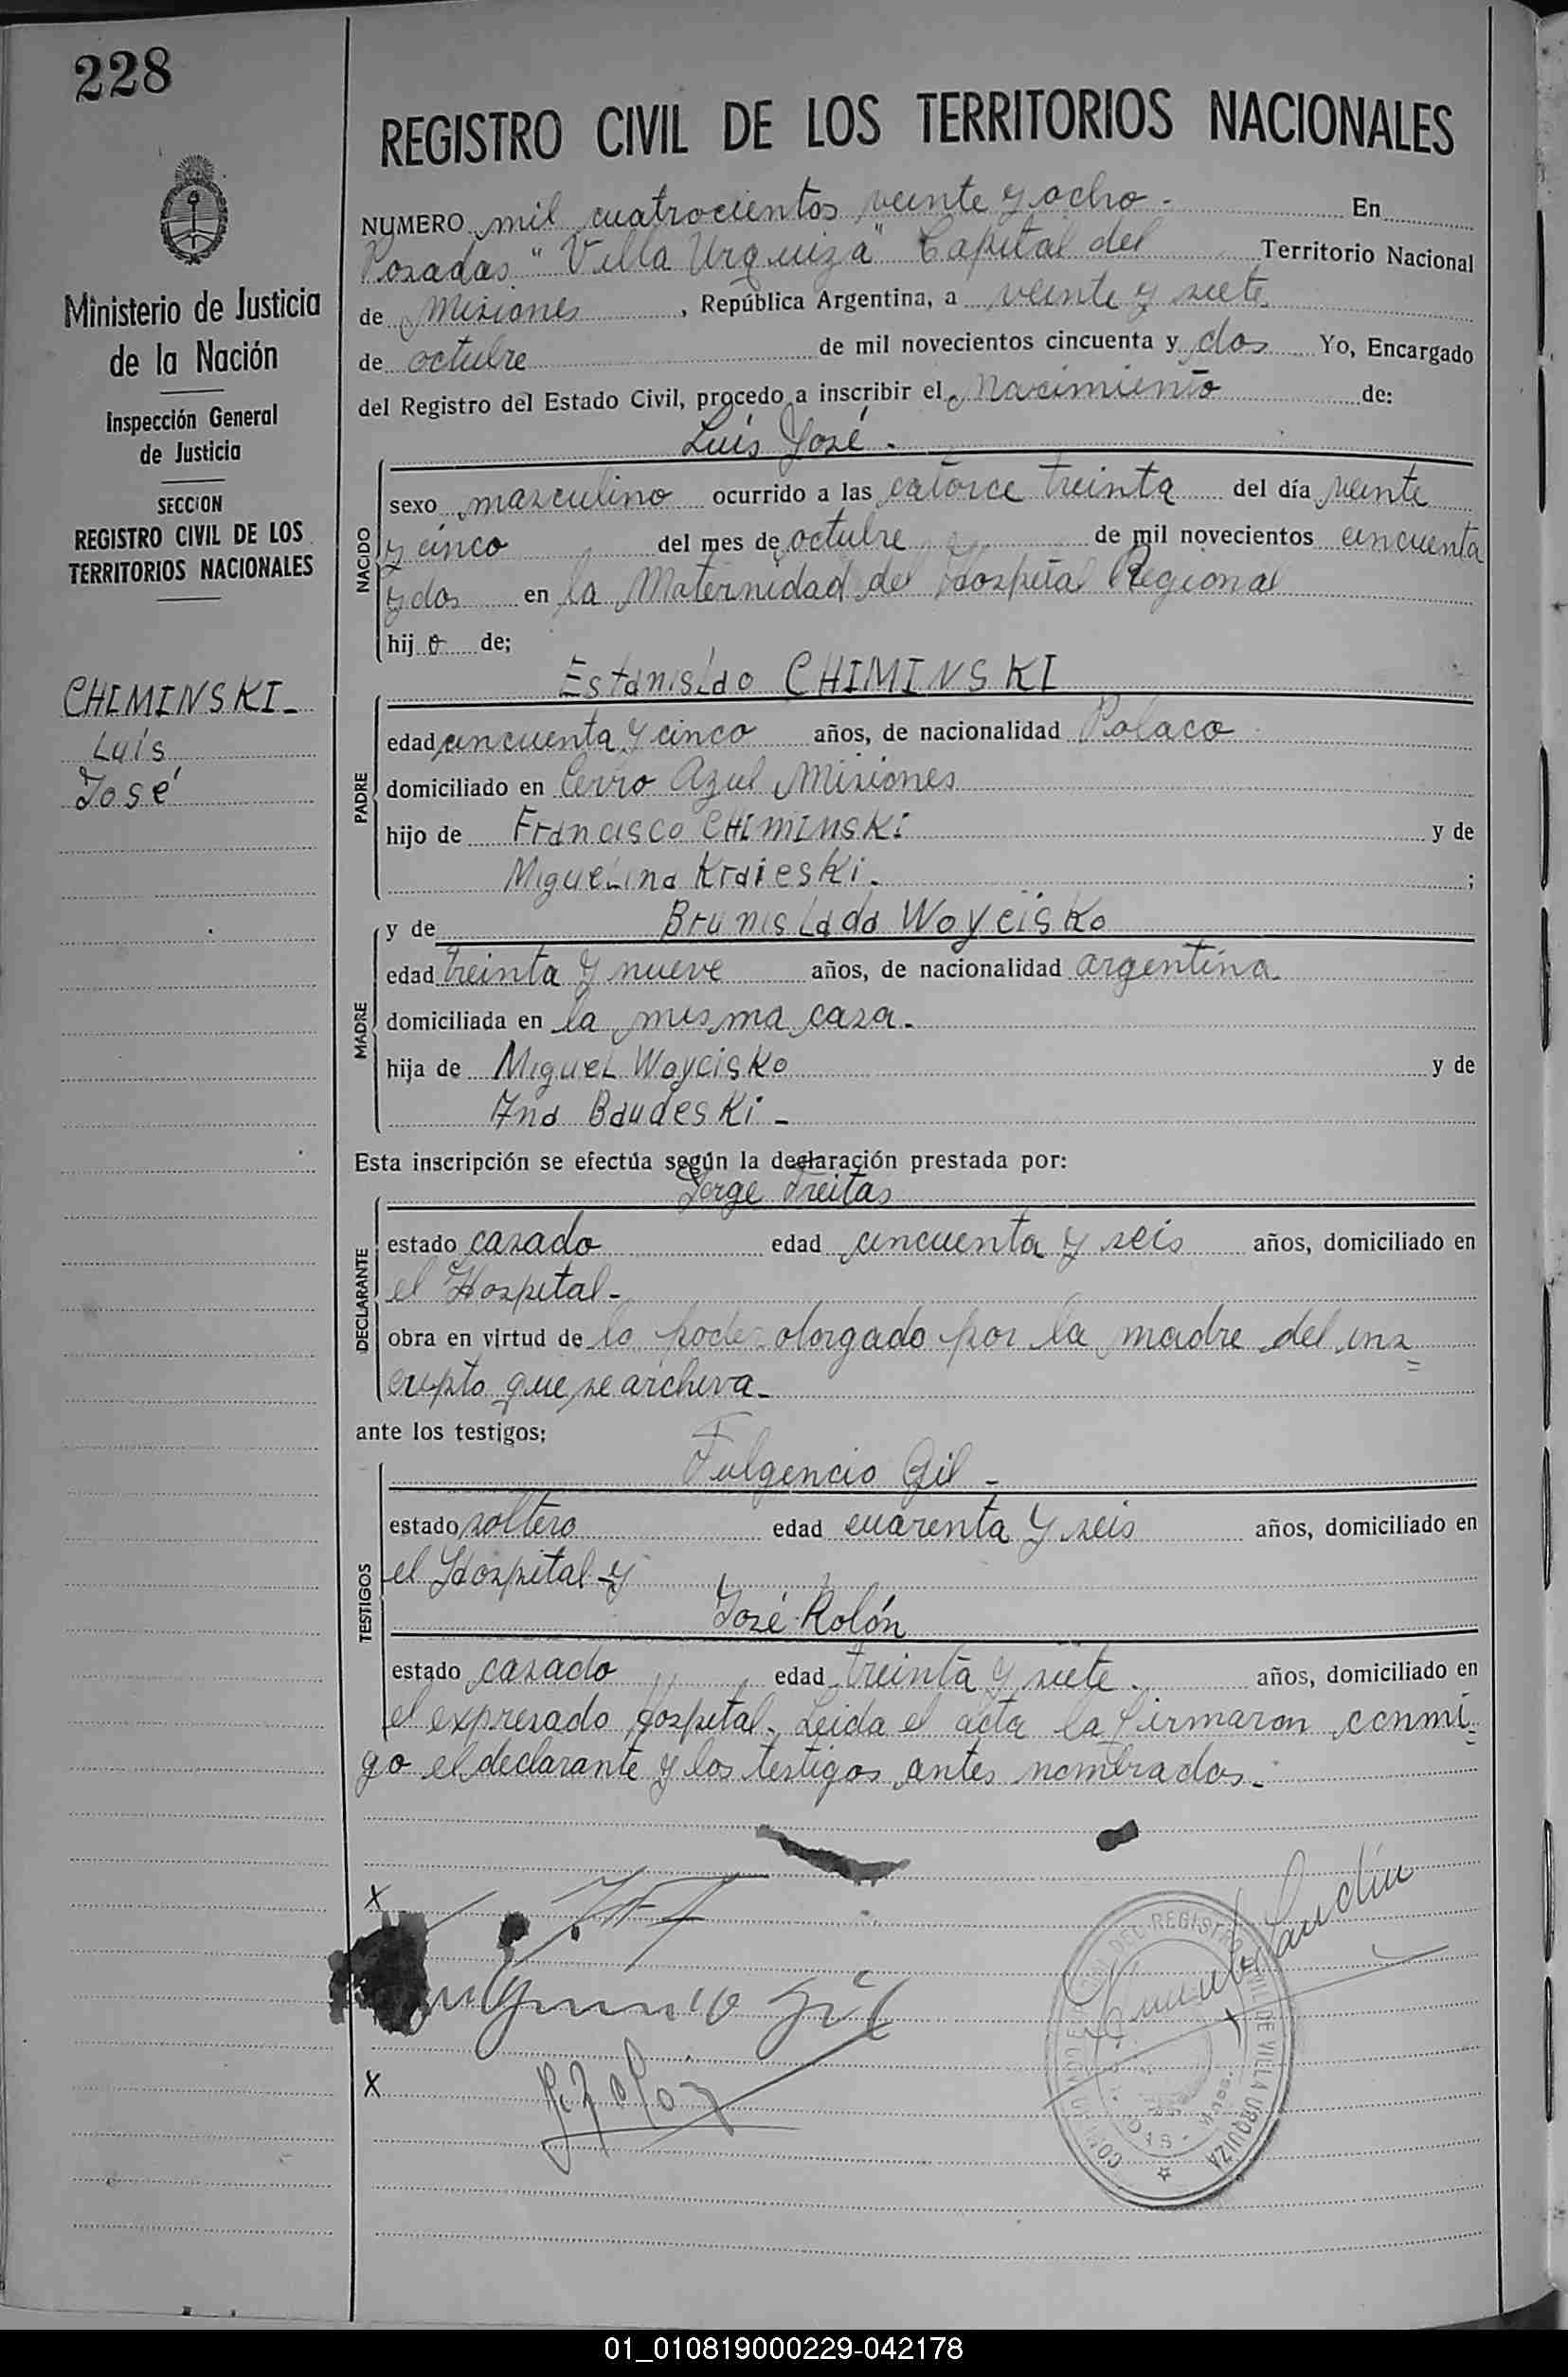 228
Ministerio de Justicia
de la Nación
Inspección General
de Justicia
SECCION
REGISTRO CIVIL DE LOS
TERRITORIOS NACIONALES
CHIMINSKI_
Luis
José
REGISTRO CIVIL DE LOS TERRITORIOS NACIONALES
NUMERO mil cuatrocientos veinte y ocho - En
Posadas "Villa Urquiza" Capital del Territorio Nacional
de Misiones, República Argentina, a veinte y siete
de octubre de mil novecientos cincuenta y dos Yo, Encargado
del Registro del Estado Civil, procedo a inscribir el Nacimiento de:
Luis José.
NACIDO
sexo masculino ocurrido a las catorce treinta del día veinte
y cinco del mes de octubre de mil novecientos cincuenta
y dos en la Maternidad del Hospital Regional
hijo de;
Estanislao CHIMINSKI
PADRE
edad cincuenta y cinco años, de nacionalidad Polaco
domiciliado en Cerro Azul Misiones
hijo de Francisco CHIMINSKi y de
Miguelina Kraieski. ;
MADRE
y de Brunislada Woycisko
edad treinta y nueve años, de nacionalidad argentina
domiciliada en la misma casa.
hija de Miguel Woycisko y de
Ana Baudeski -
Esta inscripción se efectúa según la declaración prestada por:
Jorge Freitas
DECLARANTE
estado casado edad cincuenta y seis años, domiciliado en
el Hospital-
obra en virtud de lo poder otorgado por la madre del ins=
cripto que se archiva-
ante los testigos:
Fulgencio Gil -
TESTIGOS
estado soltero edad cuarenta y seis años, domiciliado en
el Hospital y
José Rolón
estado casado edad treinta y siete. años, domiciliado en
el expresado Hospital. Leida el acta la firmaron conmi=
go el declarante y los testigos antes nombrados.-
x
Gil
x
DEL REGISTRO CIVIL DE VILLA URQUIZA
01_010819000229-042178